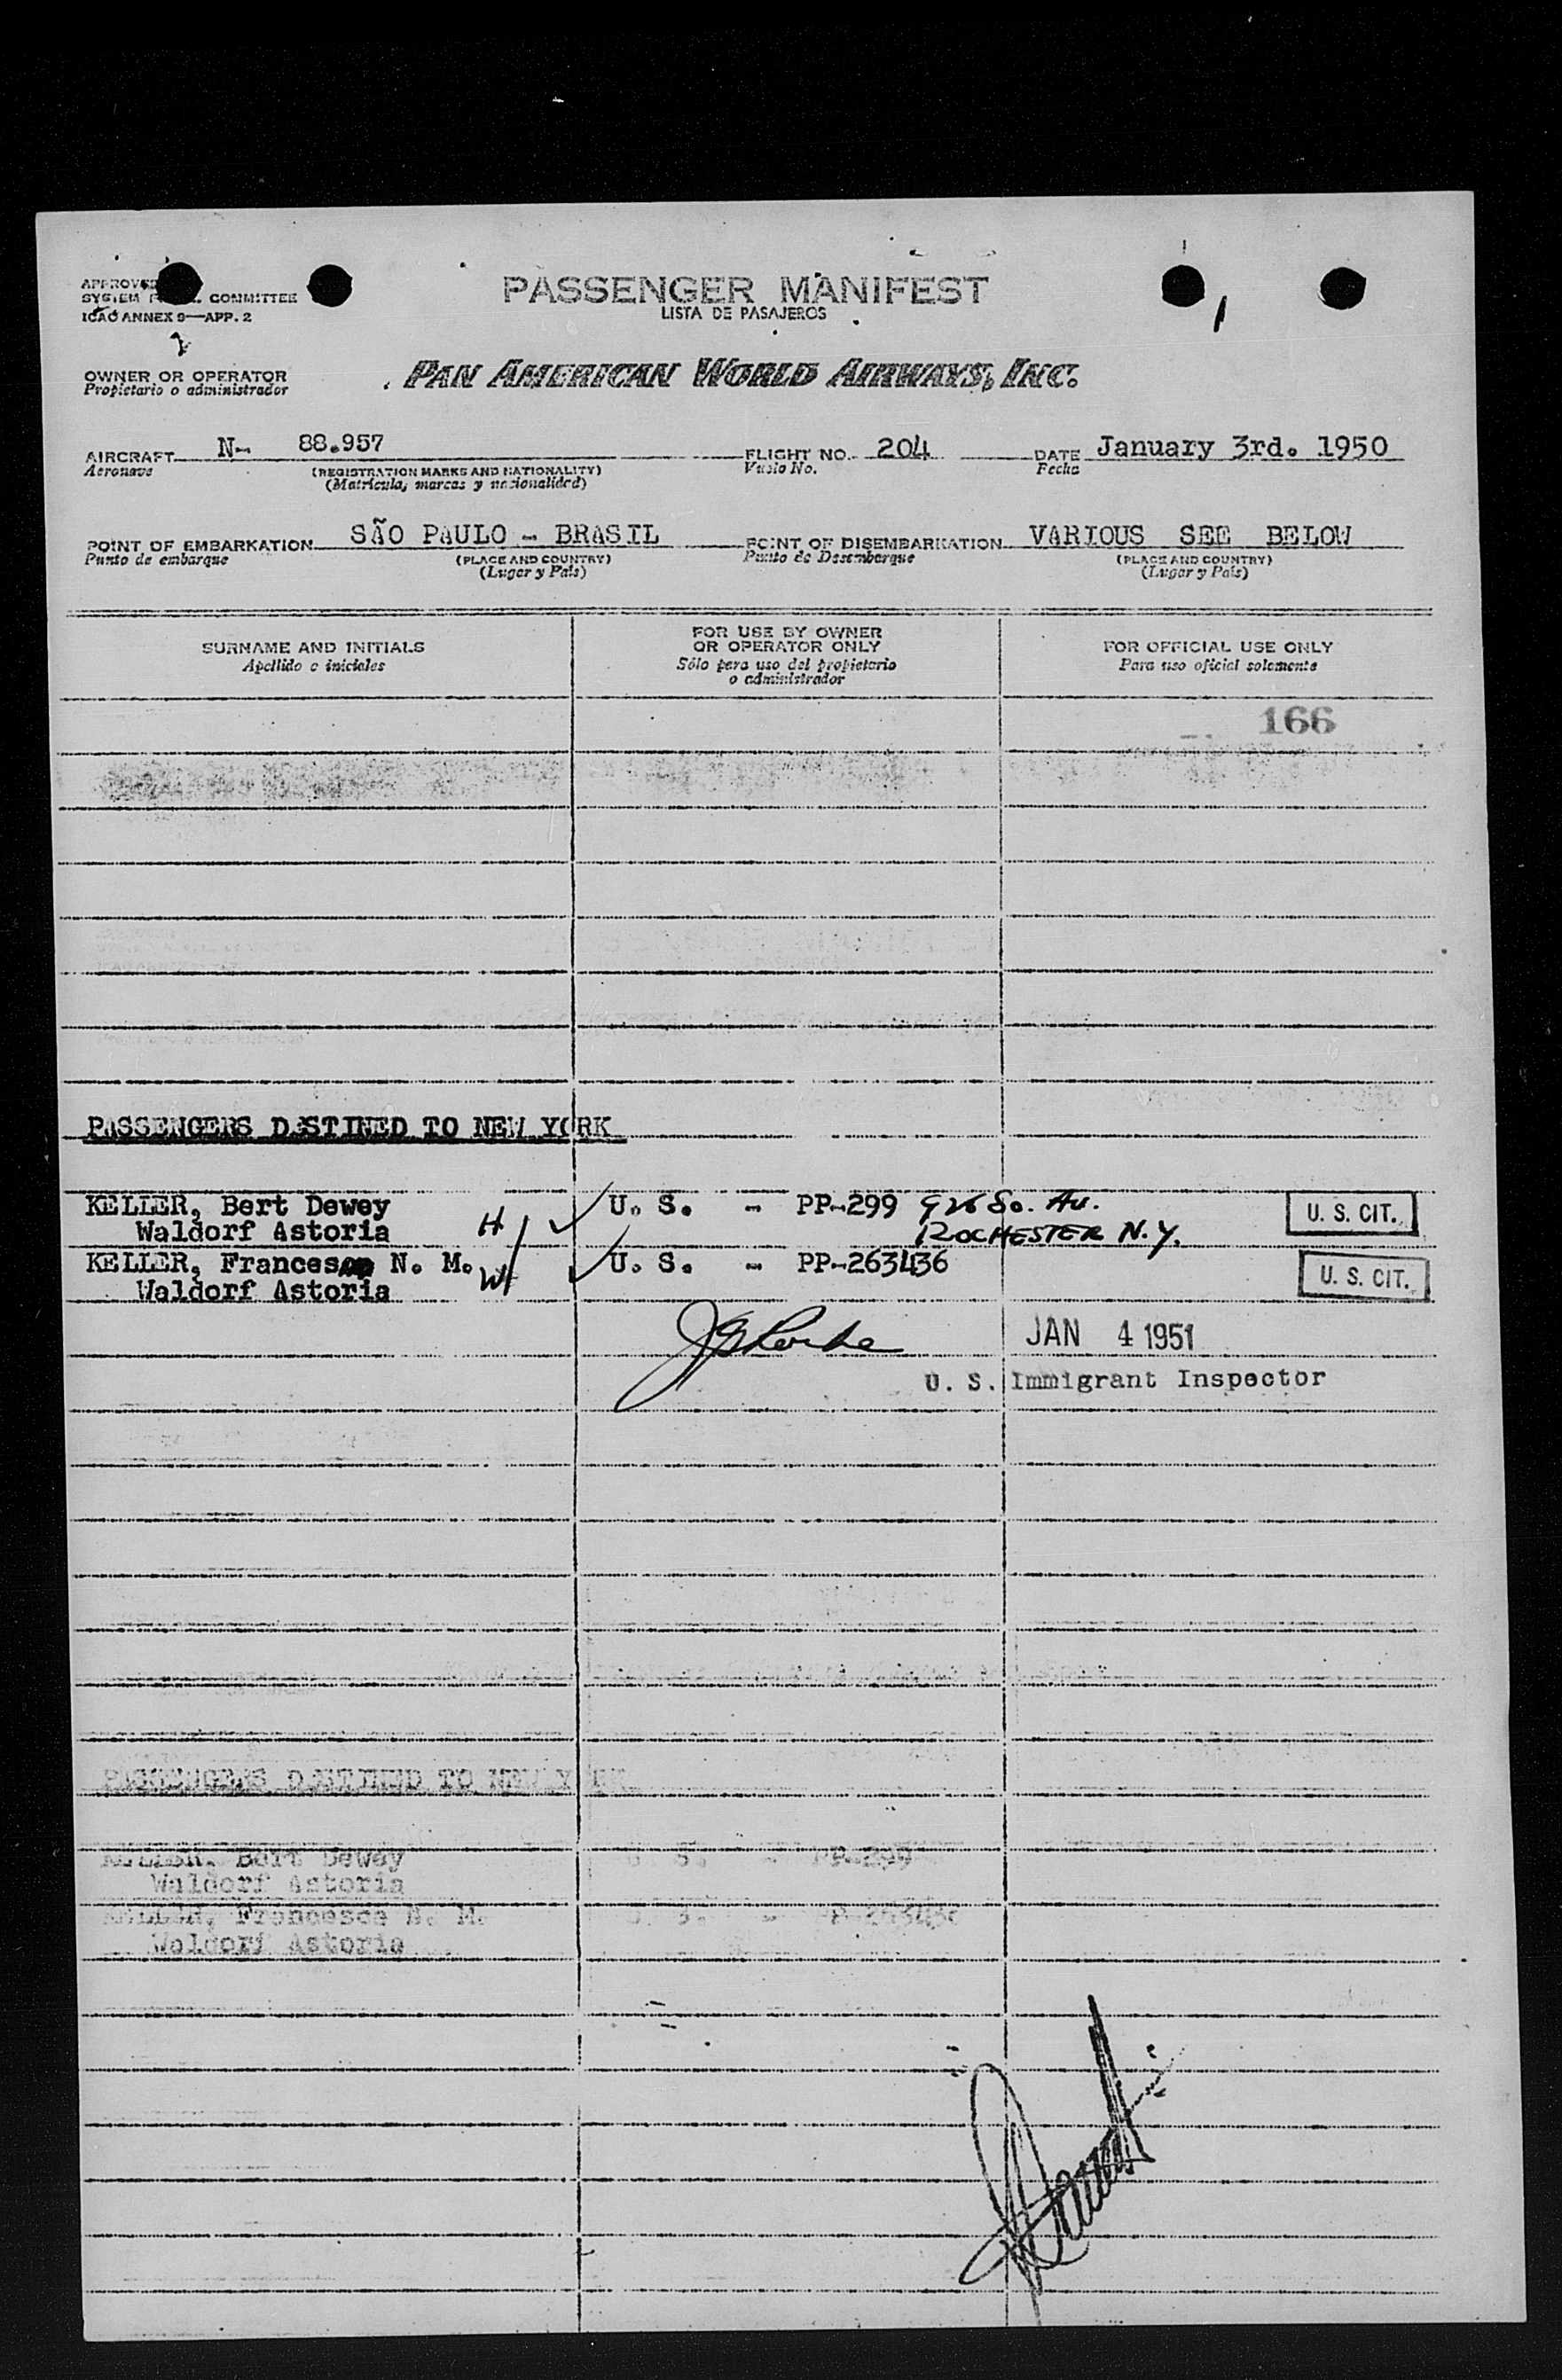 APPROVED
SYSTEM COMMITTEE
ICAO ANNEX 9—APP. 2
PASSENGER MANIFEST
LISTA DE PASAJEROS
OWNER OR OPERATOR
Propietario o administrador
PAN AMERICAN WORLD AIRWAYS, INC.
AIRCRAFT N- 88.957 FLIGHT NO. 204 DATE January 3rd. 1950
Aeronave (REGISTRATION MARKS AND NATIONALITY) Vuelo No. Fecha
(Matrícula, marcas y nacionalidad)
POINT OF EMBARKATION SÃO PAULO - BRASIL POINT OF DISEMBARKATION VARIOUS SEE BELOW
Punto de embarque (PLACE AND COUNTRY) Punto de Desembarque (PLACE AND COUNTRY)
(Lugar y País) (Lugar y País)
SURNAME AND INITIALS
Apellido e iniciales
FOR USE BY OWNER
OR OPERATOR ONLY
Sólo para uso del propietario
o administrador
FOR OFFICIAL USE ONLY
Para uso oficial solamente
166
PASSENGERS DESTINED TO NEW YORK
KELLER, Bert Dewey H U. S. - PP-299 926 So. Av. U. S. CIT.
Waldorf Astoria ROCHESTER N.Y.
KELLER, Frances N. M. W U. S. - PP-263436 U. S. CIT.
Waldorf Astoria
JAN 4 1951
U. S. Immigrant Inspector
PASSENGERS DESTINED TO NEW YORK
KELLER, Bert Dewey U. S. - PP-299
Waldorf Astoria
KELLER, Francesca N. M. U. S. - PP-263436
Waldorf Astoria